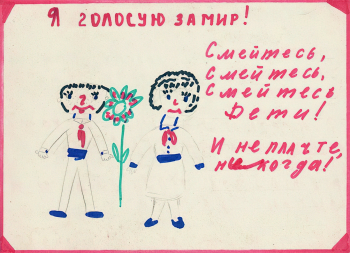 Я ГОЛОСУЮ ЗА МИР!
Смейтесь,
Смейтесь,
Смейтесь
Дети!
И не плачте,
никогда!